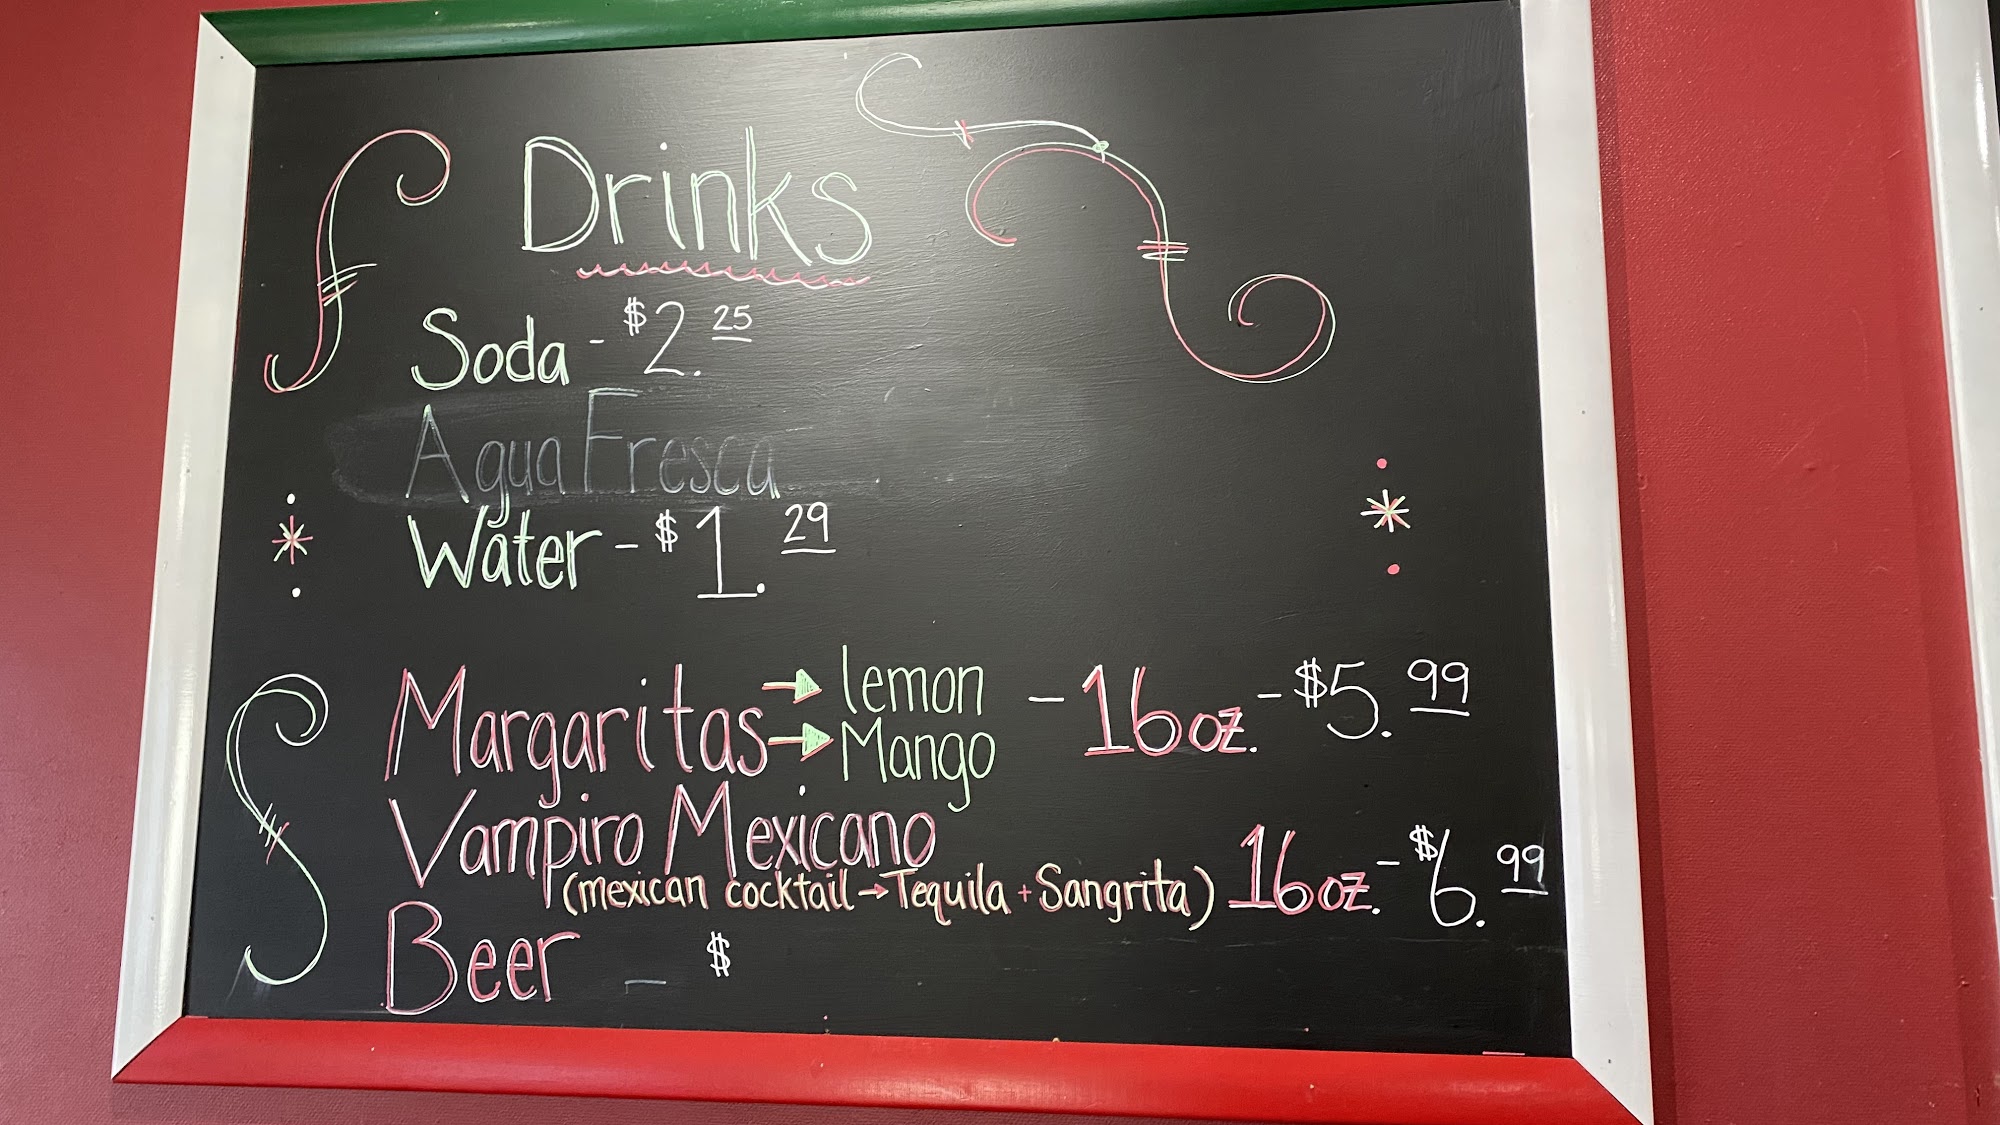 Drinks
Soda - $2.25
Agua Fresca
Water - $1.29
Margaritas → lemon - 16oz. - $5.99
→ Mango
Vampiro Mexicano
(mexican cocktail → Tequila + Sangrita) 16oz. - $6.99
Beer - $